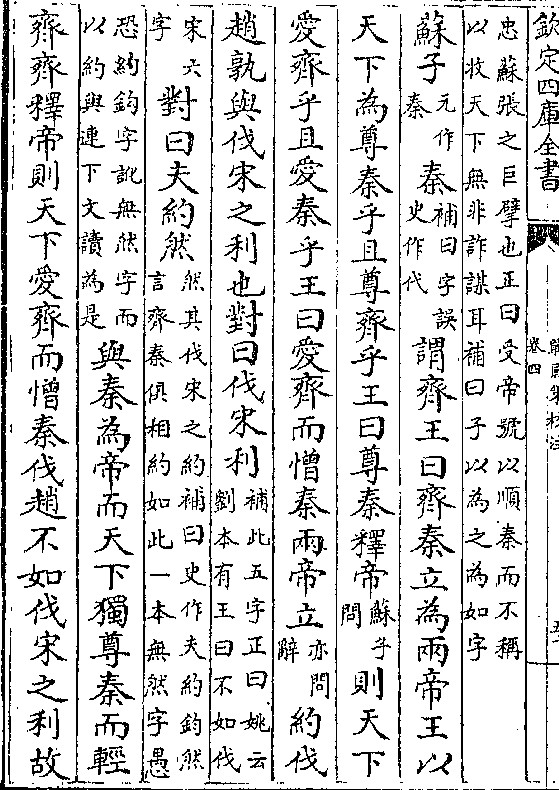 欽定四庫全書
卷四
忠蘇張之巨擘也正曰受帝號以順秦而不稱
以收天下無非詐謀耳補曰子以為之為如字
蘇子元作秦秦補曰字誤史作代謂齊王曰齊秦立為兩帝王以
天下為尊秦乎且尊齊乎王曰尊秦釋帝蘇子問則天下
愛齊乎且愛秦乎王曰愛齊而憎秦兩帝立亦問辭約伐
趙孰與伐宋之利也對曰伐宋利補此五字正曰姚云劉本有王曰不如伐
宋六字對曰夫約然然其伐宋之約補曰史作夫約鈞然言齊秦俱相約如此一本無然字愚
恐約鈞字訛無然字而以約與連下文讀為是與秦為帝而天下獨尊秦而輕
齊齊釋帝則天下愛齊而憎秦伐趙不如伐宋之利故